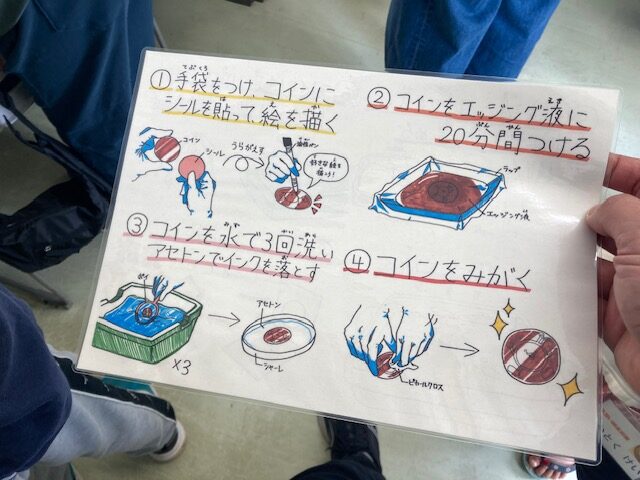 ① 手袋をつけ、コインに
シールを貼って絵を描く
てぶくろ
コイン
シール
うらがえす
油性ペン
好きな絵を
描こう!
② コインをエッジング液に
20分間つける
ラップ
エッジング液
③ コインを水で3回洗い
アセトンでインクを落とす
ポイ
×3
アセトン
シャーレ
④ コインをみがく
ピカールクロス